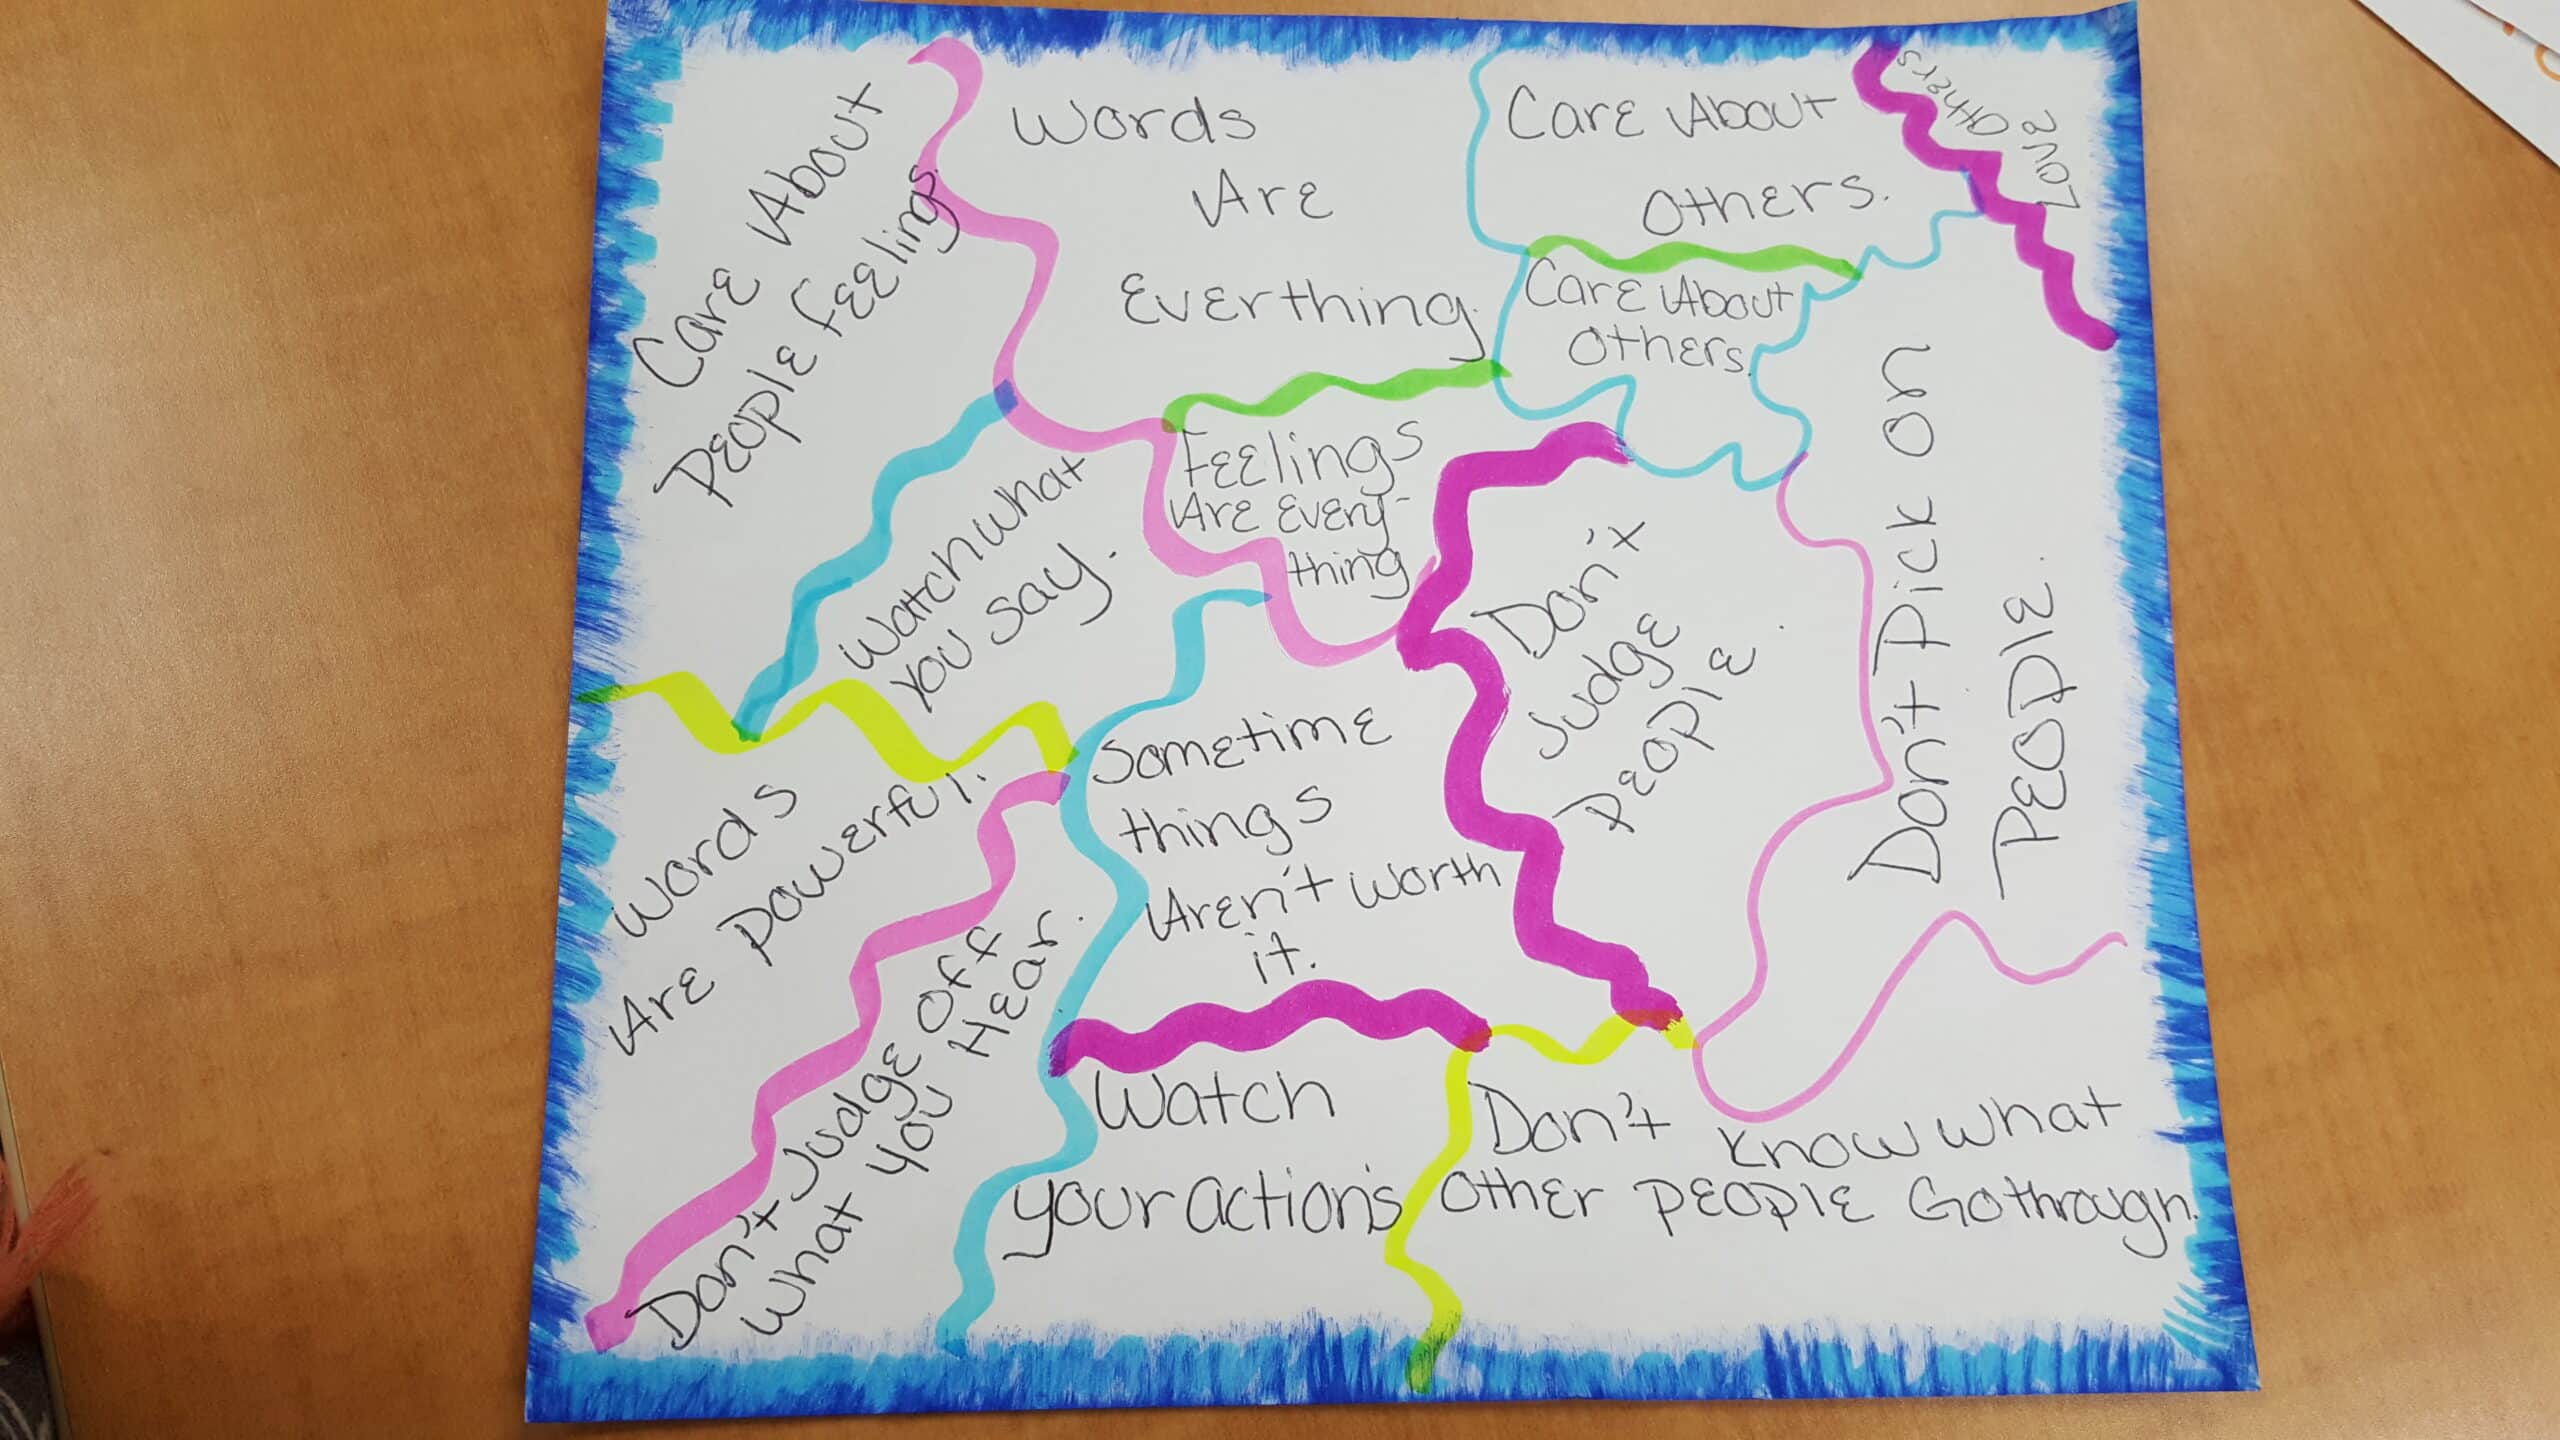 Care About
People feelings.
Words
Are
Everthing.
Care About
Others.
Love
Others
Care About
Others.
Watch what
You say.
Feelings
Are Every-
thing
Don't
Judge
People.
Don't Pick on
People.
Words
Are Powerful.
Sometime
things
Aren't worth
it.
Don't Judge off
What you Hear.
Watch
your action's
Don't know what
Other People Go through.